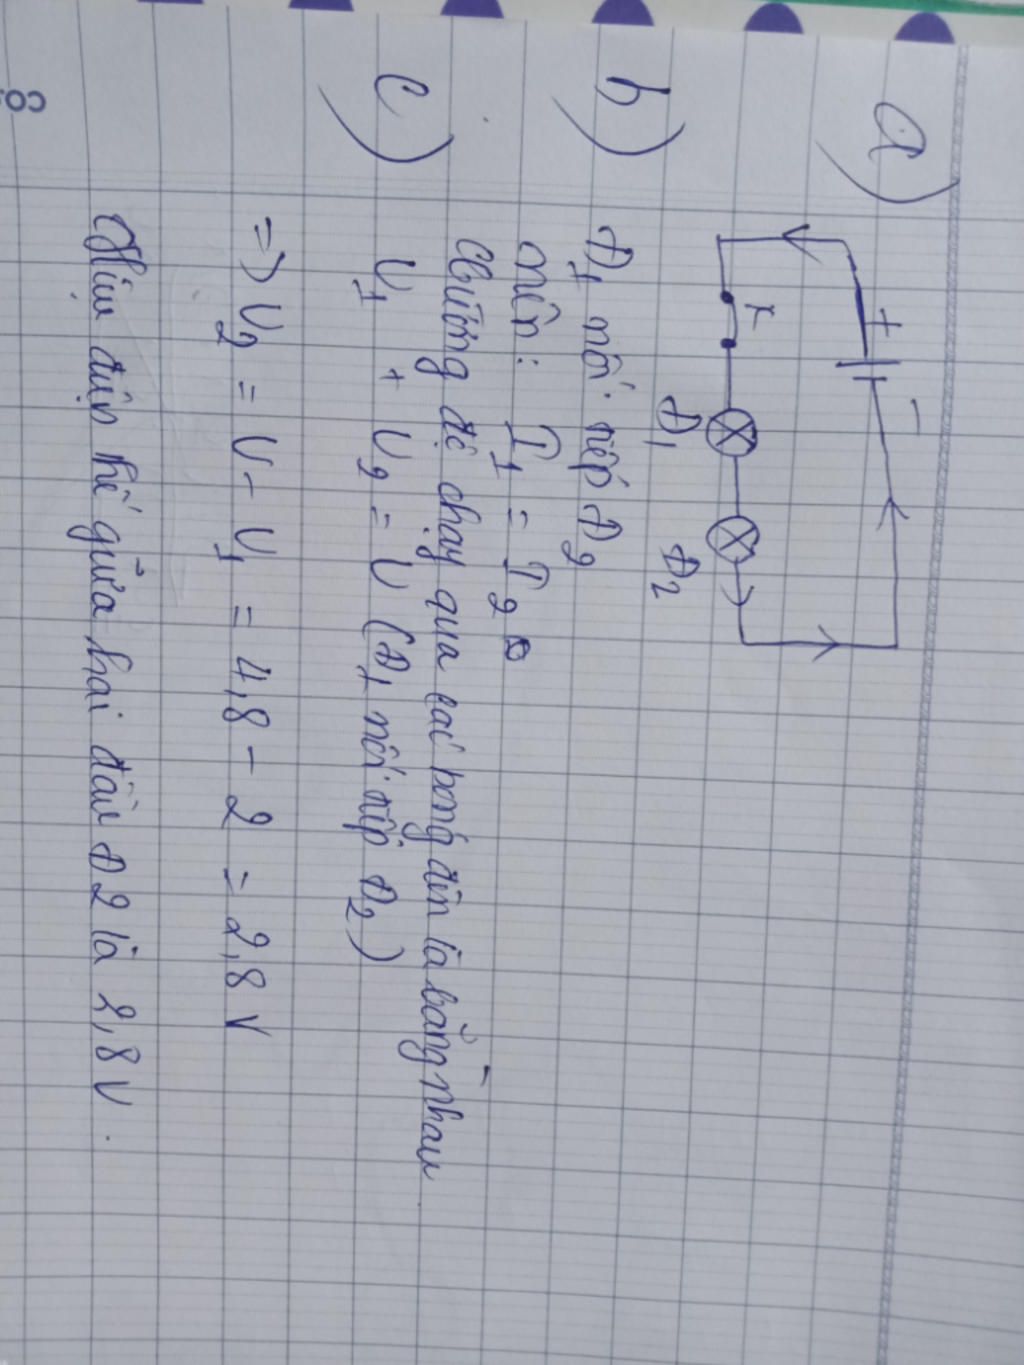 a)
+ -
K
Đ1 Đ2
b) Đ1 nối tiếp Đ2
nên: I1 = I2
Cường độ chạy qua các bóng đèn là bằng nhau
c) U1 + U2 = U (Đ1 nối tiếp Đ2)
=> U2 = U - U1 = 4,8 - 2 = 2,8 V
Hiệu điện thế giữa hai đầu Đ2 là 2,8V.
8